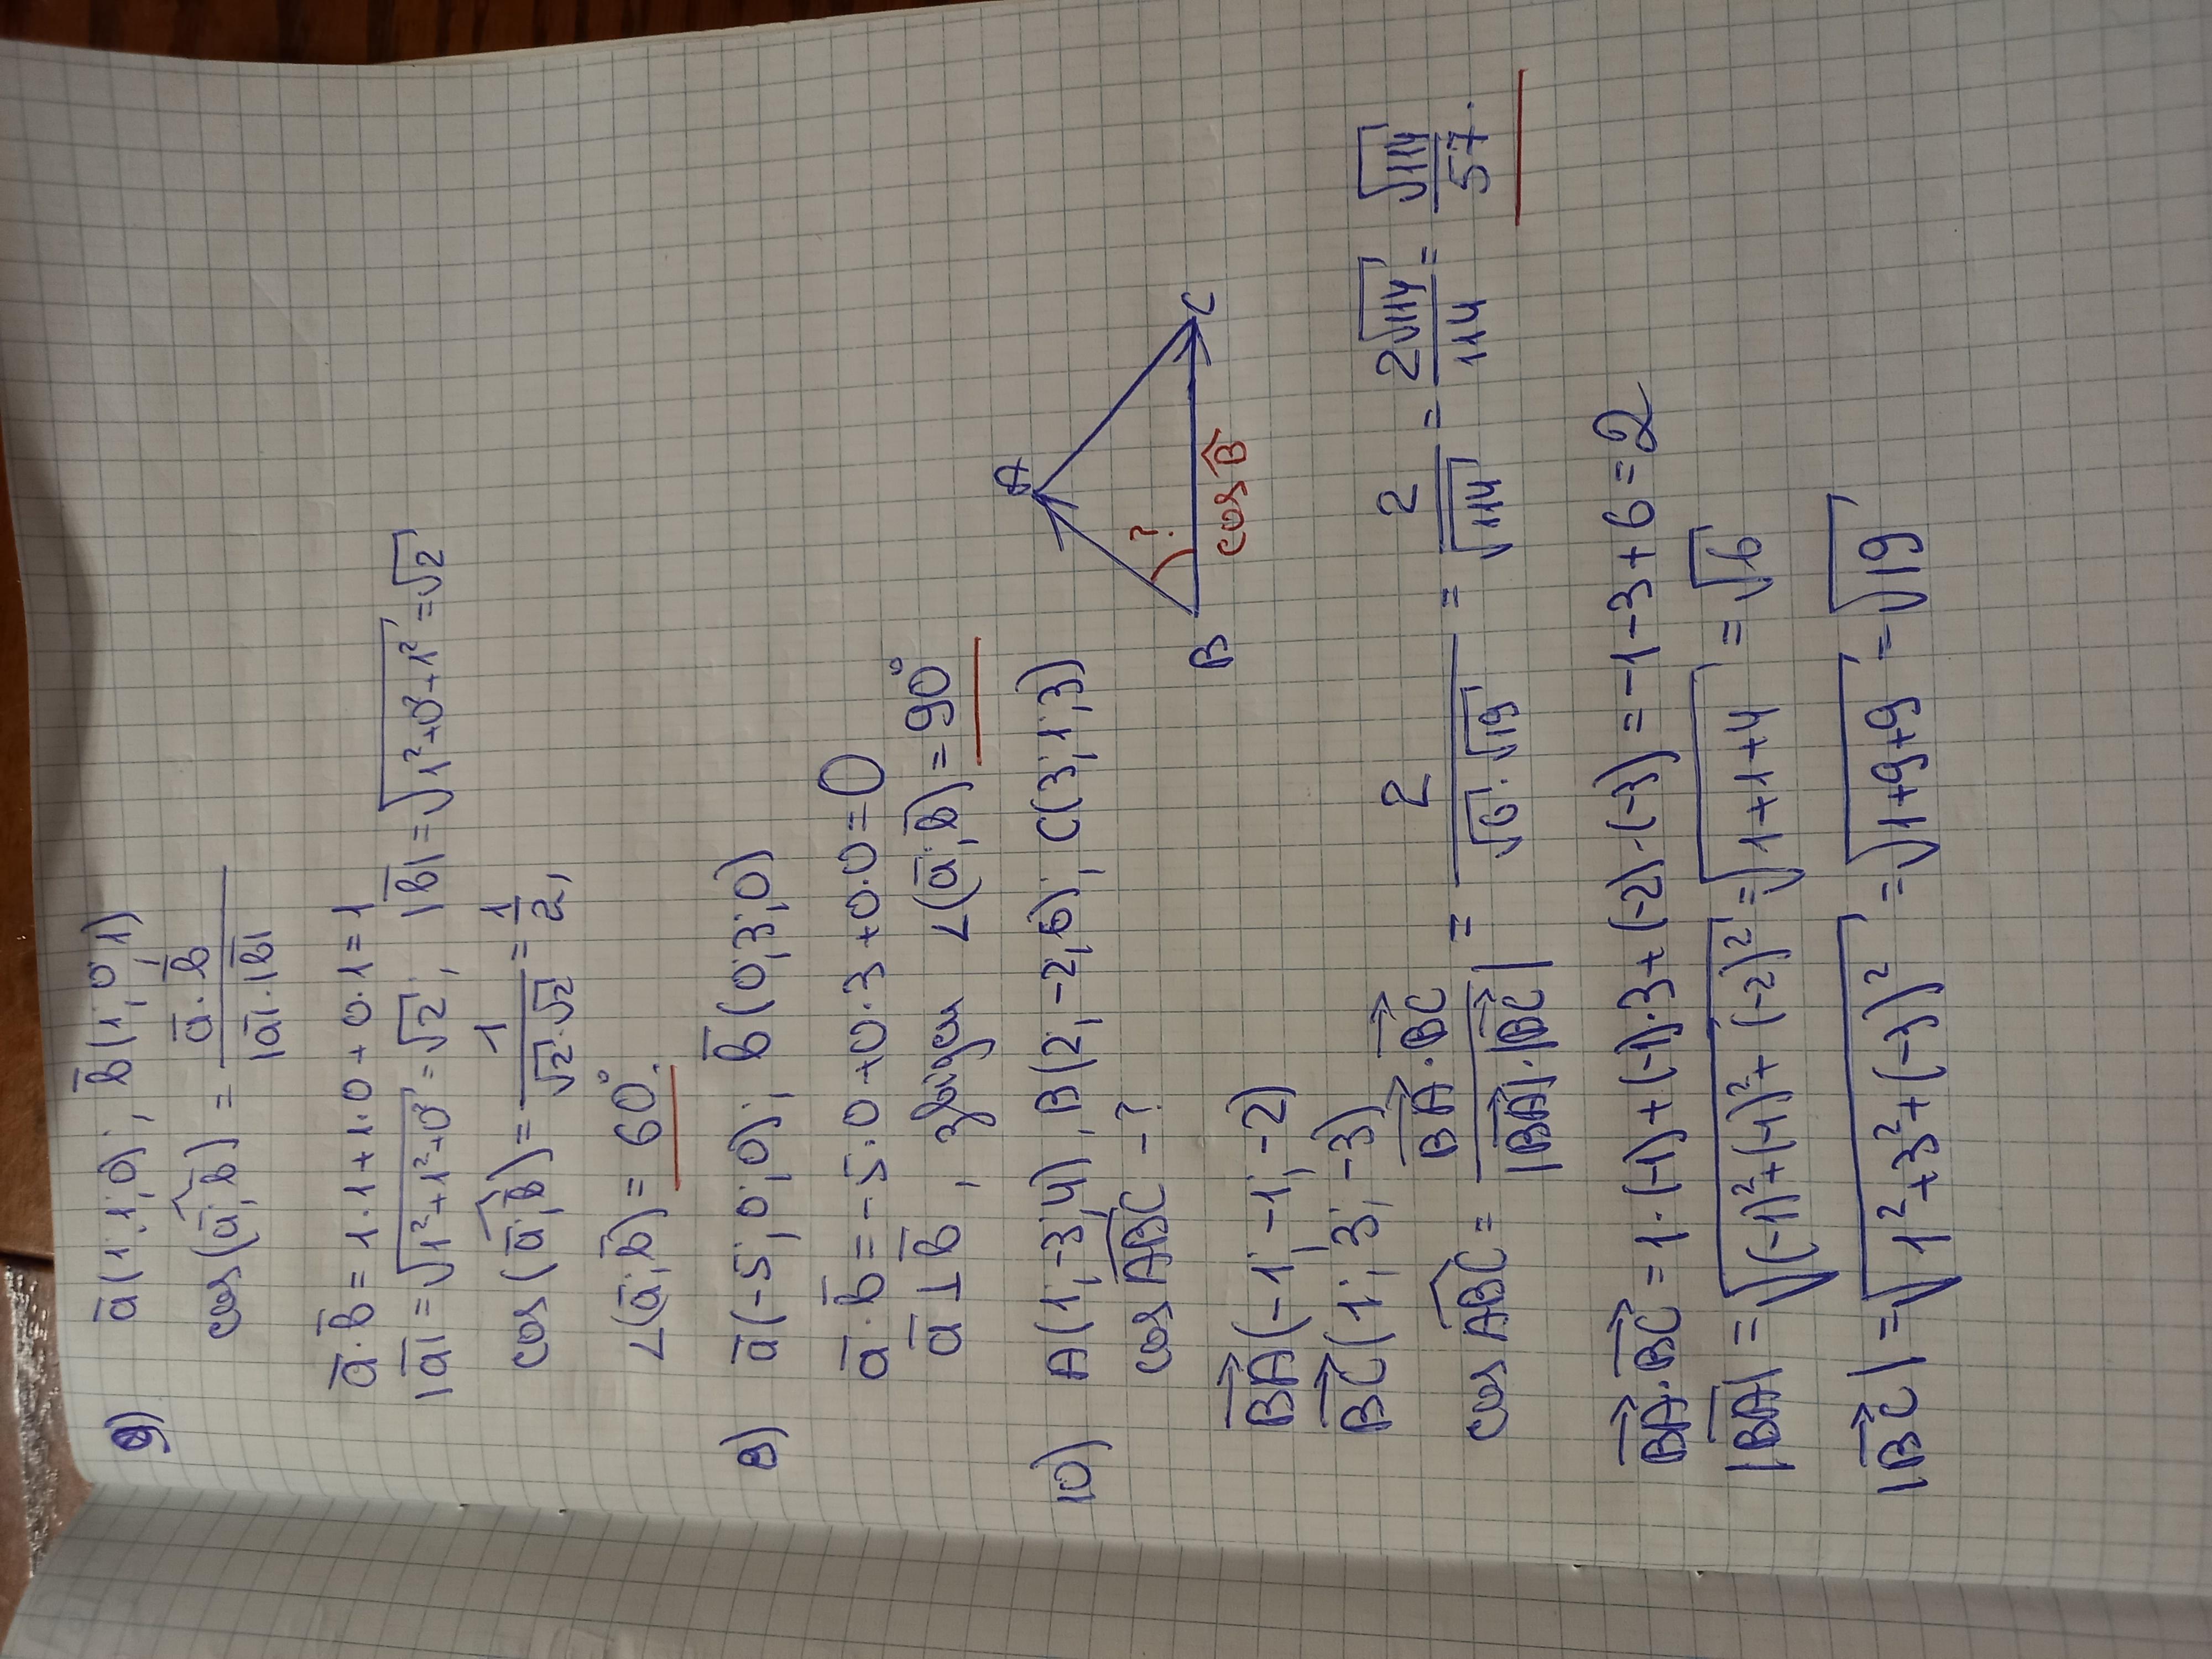 9) a̅(1;1;0); b̅(1;0;1)
cos(a̅;b̅) = a̅·b̅ / |a̅|·|b̅|
a̅·b̅ = 1·1+1·0+0·1=1
|a̅| = √1²+1²+0² = √2; |b̅| = √1²+0²+1² = √2
cos(a̅;b̅) = 1/√2·√2 = 1/2,
∠(a̅;b̅) = 60°.
8) a̅(-5;0;0); b̅(0;3;0)
a̅·b̅ = -5·0+0·3+0·0=0
a̅⊥b̅, звідси ∠(a̅;b̅)=90°
10) A(1;-3;4), B(2;-2;6); C(3;1;3)
cos ABC - ?
A
?
B
C
cos B
BA(-1;-1;-2)
BC(1;3;-3)
cos ABC = BA·BC / |BA|·|BC| = 2/√6·√19 = 2/√114 = 2√114/114 = √114/57.
BA·BC = 1·(-1)+(-1)·3+(-2)·(-3) = -1-3+6=2
|BA| = √(-1)²+(-1)²+(-2)² = √1+1+4 = √6
|BC| = √1²+3²+(-3)² = √1+9+9 = √19